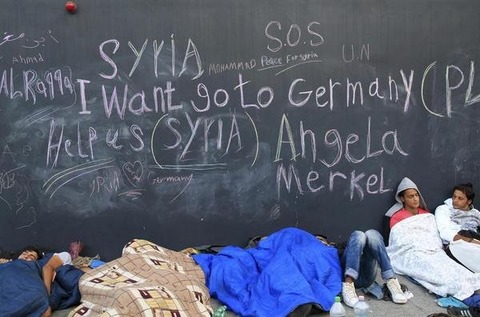 S.O.S
SYRIA MOHAMMAD Peace For Syria U.N
Ahmad
AlRaqqa I Want go to Germany (PL
Help us (SYRIA) Angela
Merkel